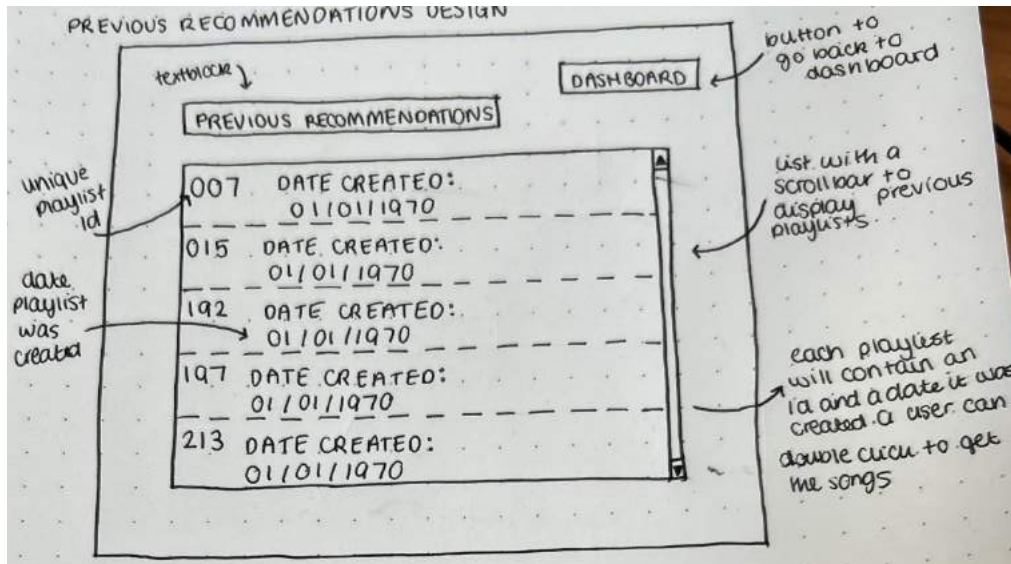 PREVIOUS RECOMMENDATIONS DESIGN
textblock
DASHBOARD
button to
go back to
dashboard
PREVIOUS RECOMMENDATIONS
unique
playlist
id
007 DATE CREATED:
01/01/1970
015 DATE CREATED:
01/01/1970
192 DATE CREATED:
01/01/1970
197 DATE CREATED:
01/01/1970
213 DATE CREATED:
01/01/1970
date
playlist
was
created
list with a
scrollbar to
display previous
playlists
each playlist
will contain an
id and a date it was
created. a user can
double click to get
the songs